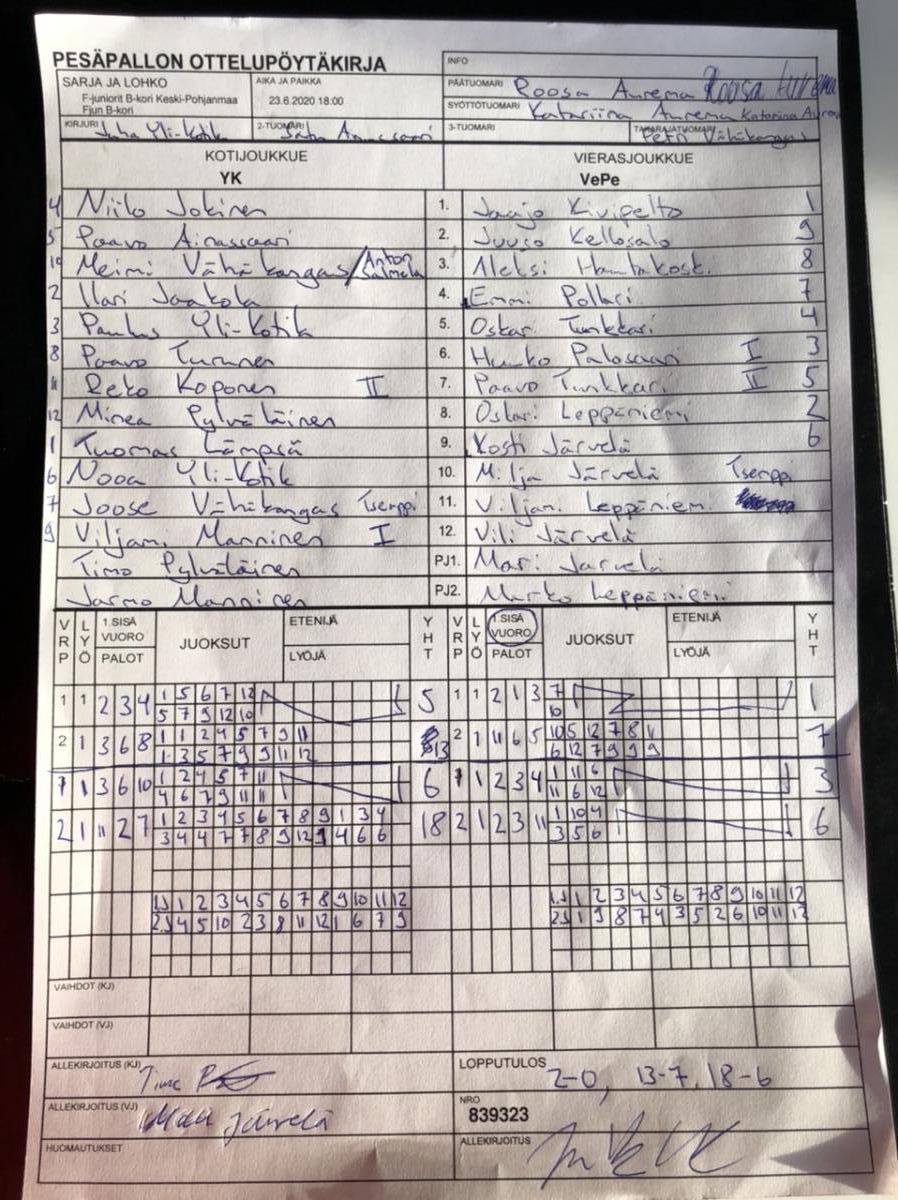 PESÄPALLON OTTELUPÖYTÄKIRJA
INFO
SARJA JA LOHKO
F-juniorit B-kori Keski-Pohjanmaa
Fjun B-kori
AIKA JA PAIKKA
23.6.2020 18:00
PÄÄTUOMARI Roosa Aurema Roosa Aurema
SYÖTTÖTUOMARI Katariina Aurema Katariina
KIRJURI Juha Yli-Kotik
2-TUOMARI
3-TUOMARI
TAKARAJATUOMARI Petri Vähäkangas
KOTIJOUKKUE
YK
VIERASJOUKKUE
VePe
4 Niilo Jokinen 1. Jaajo Kivipelto 1
5 Paavo Ainassaari 2. Juuso Kellosalo 9
10 Meimi Vähäkangas/Anton Salmela 3. Aleksi Hautakoski 8
2 Ilari Jaakola 4. Emmi Pollari 7
3 Paulus Yli-Kotik 5. Oskari Tunkkari 4
8 Paavo Turunen 6. Hunko Palosaari I 3
11 Reko Koponen II 7. Paavo Tunkkari II 5
12 Minea Pylväläinen 8. Oskari Leppäniemi 2
1 Tuomas Lämpsä 9. Kosti Järvelä 6
6 Nooa Yli-Kotik 10. Milja Järvelä Tsemppi
7 Joose Vähäkangas Tsemppi 11. Viljami Leppäniemi
9 Viljami Manninen I 12. Vili Järvelä
Timo Pylväläinen PJ1. Mari Järvelä
Jarmo Manninen PJ2. Marko Leppäniemi
VRP LYÖ 1.SISÄ VUORO PALOT JUOKSUT ETENIJÄ LYÖJÄ YHT VRP LYÖ 1.SISÄ VUORO PALOT JUOKSUT ETENIJÄ LYÖJÄ YHT
1 1 2 3 4 1 5 6 7 12 5 1 1 2 1 3 7 1
5 7 9 12 10 10
2 1 3 6 8 1 1 2 4 5 7 9 11 13 2 1 11 6 5 10 5 12 7 8 11 7
1 3 5 7 9 9 11 12 6 12 7 9 9 9
1 1 3 6 10 1 2 4 5 7 11 6 1 1 2 3 4 1 11 6 3
4 6 7 9 11 11 11 6 12
2 1 11 2 7 1 2 3 4 5 6 7 8 9 1 3 4 18 2 1 2 3 11 1 10 4 6
3 4 4 7 7 8 9 12 1 4 6 6 3 5 6
1.J 1 2 3 4 5 6 7 8 9 10 11 12 1.J 1 2 3 4 5 6 7 8 9 10 11 12
2.J 4 5 10 2 3 8 11 12 1 6 7 9 2.J 1 9 8 7 4 3 5 2 6 10 11 12
VAIHDOT (KJ)
VAIHDOT (VJ)
ALLEKIRJOITUS (KJ)
LOPPUTULOS 2-0, 13-7, 18-6
ALLEKIRJOITUS (VJ) Mari Järvelä
NRO
839323
HUOMAUTUKSET
ALLEKIRJOITUS